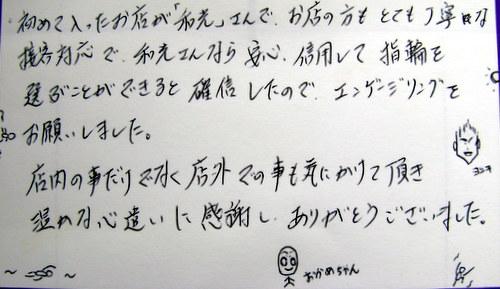 初めて入ったお店が「和光」さんで、お店の方もとても丁寧な
接客対応で、和光さんなら安心、信用して指輪を
選ぶことができると確信したので、エンゲージリングを
お願いしました。
店内の事だけでなく店外での事も気にかけて頂き
温かな心遣いに感謝し、ありがとうございました。
おかめちゃん